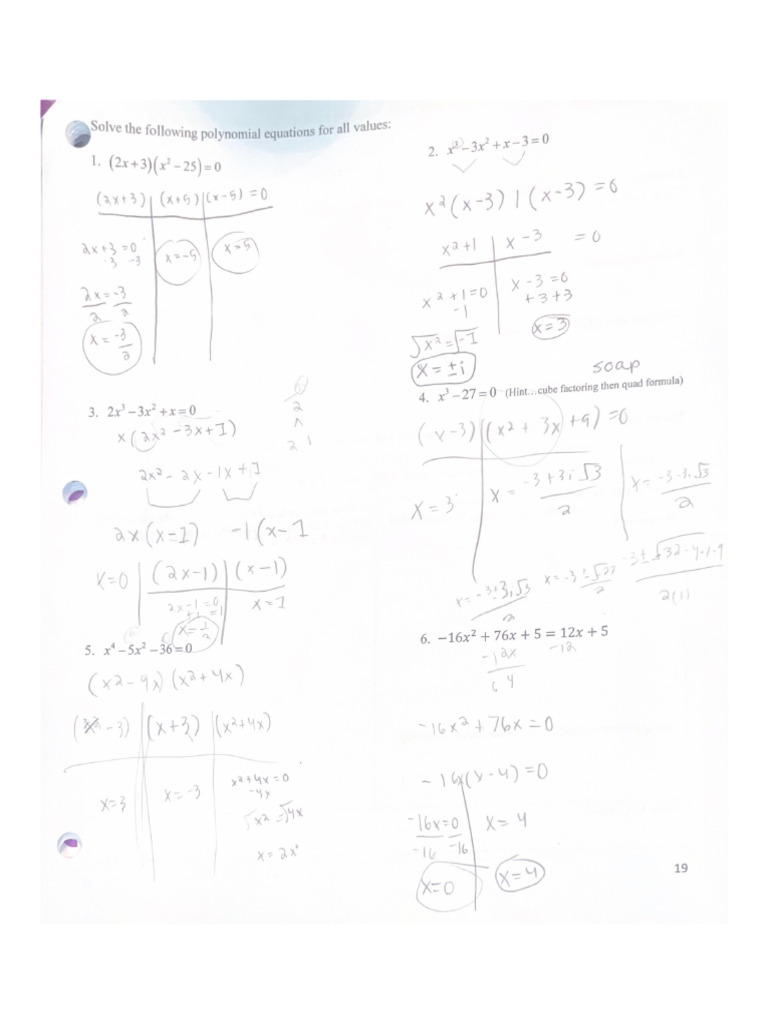 Solve the following polynomial equations for all values:
1. (2x+3)(x²−25)=0
(2x+3) (x+5) (x−5) =0
2x+3=0
-3 -3
x=-5
x=5
2x=-3
2 2
x=-3/2
2. x³−3x²+x−3=0
x²(x−3) | (x−3) =0
x²+1 x−3 =0
x²+1=0
-1
x−3=0
+3+3
√x²=√-1
x=3
x=±i
3. 2x³−3x²+x=0
x(2x²−3x+1)
2
2 1
2x²−2x−1x+1
2x(x−1) −1(x−1
x=0 (2x−1) (x−1)
2x−1=0
+1 =1
x=1
x=1/2
soap
4. x³−27=0 (Hint…cube factoring then quad formula)
(x−3)(x²+3x+9)=0
x=3
x= -3+3i√3
2
x= -3-3i√3
2
x= -3±3i√3
2
x=-3±√27
2
-3±√32-4·1·9
2(1)
5. x⁴−5x²−36=0
(x²−9x)(x²+4x)
−3) (x+3) (x²+4x)
x=3
x=-3
x²+4x=0
-4x
√x²=√4x
x=2xⁱ
6. −16x² + 76x + 5 = 12x + 5
-12x -12
64
-16x²+76x=0
-16x(x-4)=0
-16x=0
-16 -16
x=4
x=0
x=4
19